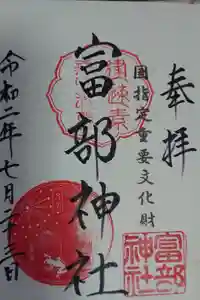 奉拝
国指定重要文化財
富部神社
令和二年七月二十三日
富部
神社